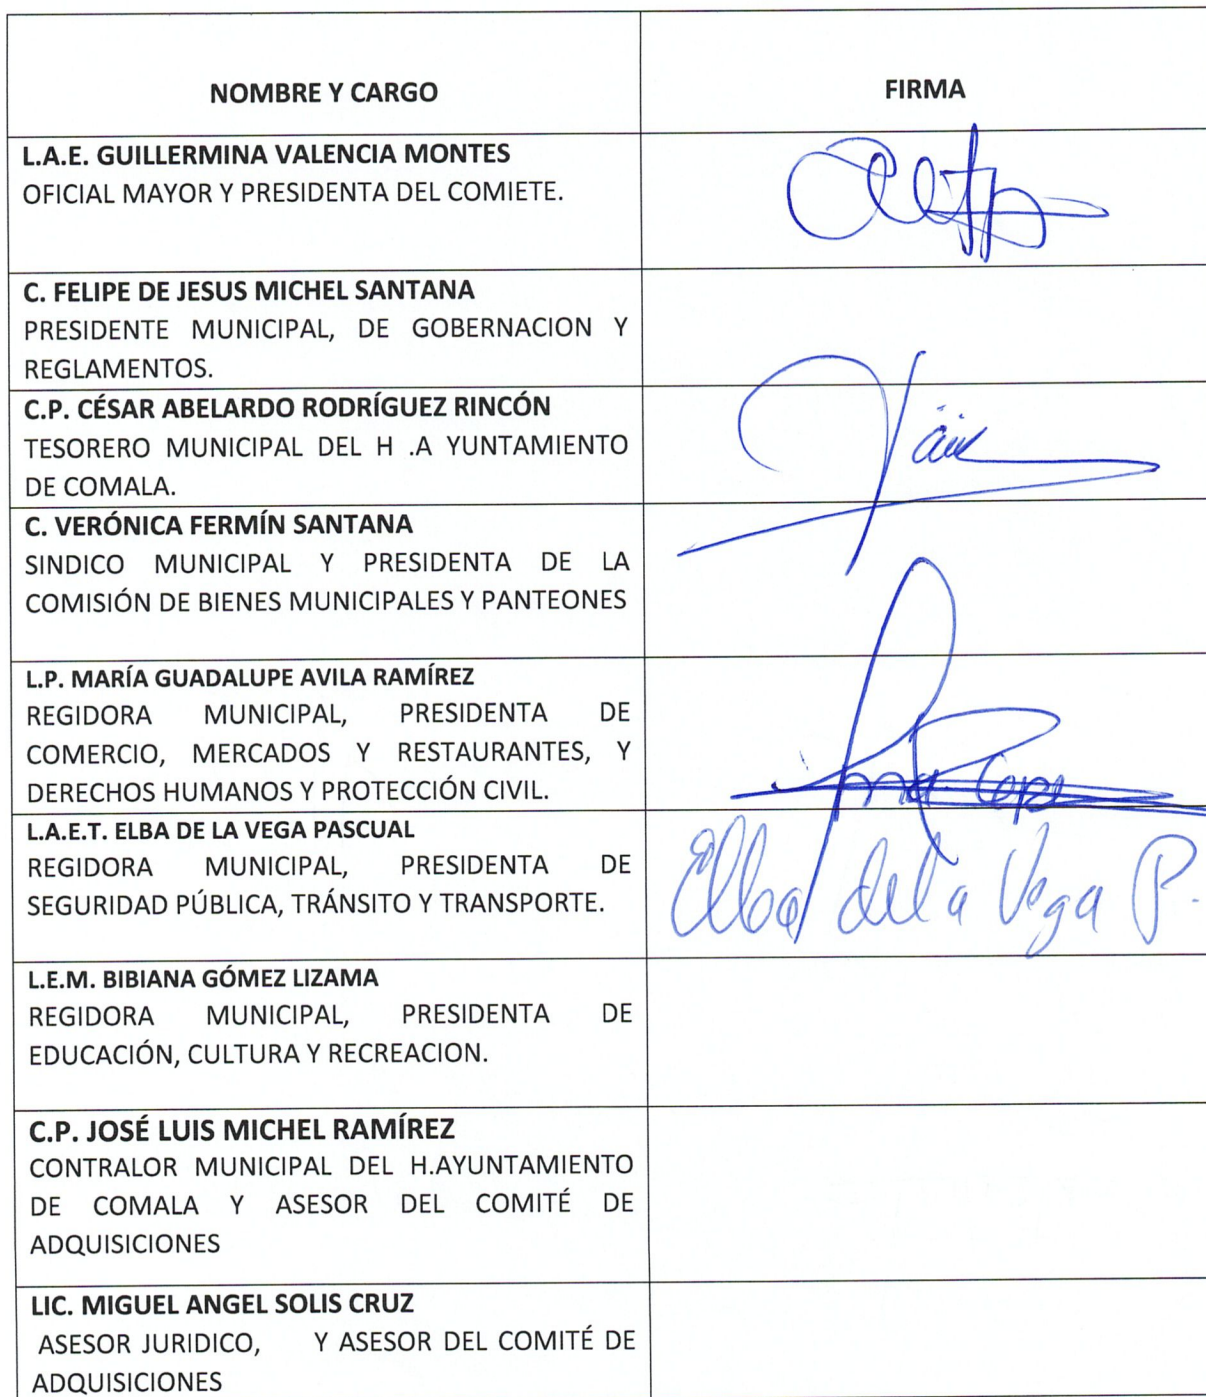 NOMBRE Y CARGO
FIRMA
L.A.E. GUILLERMINA VALENCIA MONTES
OFICIAL MAYOR Y PRESIDENTA DEL COMIETE.
C. FELIPE DE JESUS MICHEL SANTANA
PRESIDENTE MUNICIPAL, DE GOBERNACION Y
REGLAMENTOS.
C.P. CÉSAR ABELARDO RODRÍGUEZ RINCÓN
TESORERO MUNICIPAL DEL H .A YUNTAMIENTO
DE COMALA.
C. VERÓNICA FERMÍN SANTANA
SINDICO MUNICIPAL Y PRESIDENTA DE LA
COMISIÓN DE BIENES MUNICIPALES Y PANTEONES
L.P. MARÍA GUADALUPE AVILA RAMÍREZ
REGIDORA MUNICIPAL, PRESIDENTA DE
COMERCIO, MERCADOS Y RESTAURANTES, Y
DERECHOS HUMANOS Y PROTECCIÓN CIVIL.
L.A.E.T. ELBA DE LA VEGA PASCUAL
REGIDORA MUNICIPAL, PRESIDENTA DE
SEGURIDAD PÚBLICA, TRÁNSITO Y TRANSPORTE.
Elba de la Vega P.
L.E.M. BIBIANA GÓMEZ LIZAMA
REGIDORA MUNICIPAL, PRESIDENTA DE
EDUCACIÓN, CULTURA Y RECREACION.
C.P. JOSÉ LUIS MICHEL RAMÍREZ
CONTRALOR MUNICIPAL DEL H.AYUNTAMIENTO
DE COMALA Y ASESOR DEL COMITÉ DE
ADQUISICIONES
LIC. MIGUEL ANGEL SOLIS CRUZ
ASESOR JURIDICO, Y ASESOR DEL COMITÉ DE
ADQUISICIONES